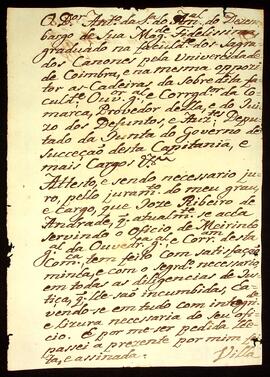 O Dor. Anto. da Sa. do Aml. do Dezem
bargo de Sua Mage. Fidelissima,
graduado na faculde. dos Sagra
dos Canones pela Universidade
de Coimbra, e na mesma oppozi
tor as Cadeiras da Sobredita fa
culde. Ouvor. gl. e Corregdor. da Co
marca, Provedor della, e do Jui
zo dos Defuntos, e Auzes. Deputa
do da Junta do Governo de
Sucçeção desta Capitania, e
mais Cargos &ca.
Attesto, e sendo necessario ju
ro, pello juramto. do meu grau,
e Cargo, que Joze Ribeiro de
Andrade, q. atualmte. se acha
servindo o Officio de Meirinho
gl. da Ouvedria. gl. e Corram. desta
Comca. tem feito com satisfação
minha, e com o segrdo. necessario,
em todas as deligencias de Jus
tiça, q. lhe são incumbidas,
vendo-se em tudo com
e lizura necessaria do seu offi
cio. E por me ser pedida
passei a prezente por mim fei
ta, e assinada.
Villa